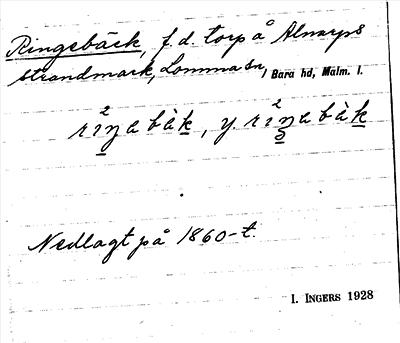 Ringebäck, f.d. torp å Alnarps
strandmark, Lomma sn, Bara hd, Malm. l.
rıŋabäk, y. rıŋabäk
Nedlagt på 1860-t.
I. INGERS 1928